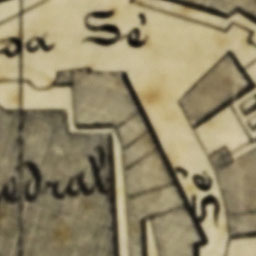 da Sé
edral
Sé